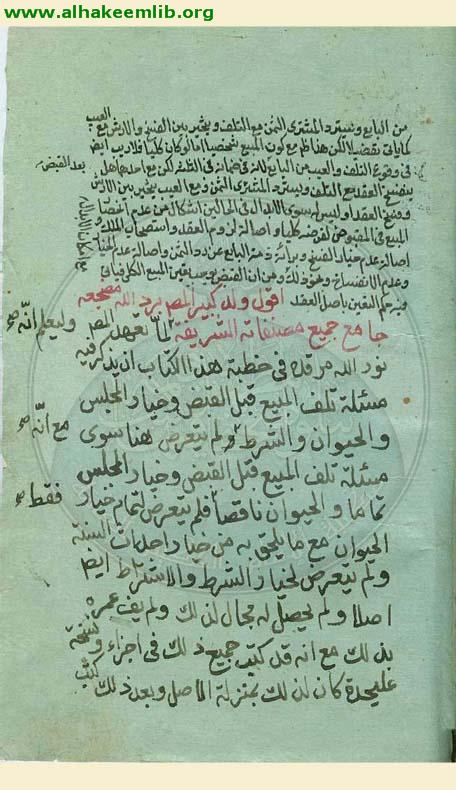 www.alhakeemlib.org
من البايع ويسترد المشترى الثمن مع التلف ويخير بين الفسخ والارش مع العيب
كما ياتى تفصيلا لكن هذا ظ مع كون المبيع شخصيا اما لو كان كليا فلا ريب ايض
فى وقوع التلف والعيب من البايع لانه فى ضمانه فى الثلثة لكن مع احدهما هل بعد القبض
ينفسخ العقد مع التلف ويسترد المشترى الثمن ومع العيب يخير بين الارش
وفسخ العقد او ليس له سوى الابدال فى الحالين اشكال من عدم انحصار
المبيع فى المقبوض لفرضه كليا واصالة لزوم العقد واستصحاب الملك و
اصالة عدم خيار الفسخ وبرائة ذمة البايع عن رد الثمن واصالة عدم الخيار
وعدم الانفساخ ونحو ذلك ومن ان القبض يتعين المبيع الكلى فياتى
فيه حكم التعين باصل العقد اقول ولد كبير المص برد الله مضجعه
جامع جميع مصنفاته الشريفة لما تعهد المص وليعلم انه صح
نور الله مرقده فى خطبة هذا الكتاب ان يذكر فيه
مسئلة تلف المبيع قبل القبض وخيار المجلس
والحيوان والشرط ولم يتعرض هنا سوى مع انه صح
مسئلة تلف المبيع قبل القبض وخيار المجلس
تماما والحيوان ناقصا فلم يتعرض لتمام خيار فقط صح
الحيوان مع ما يلحق به من خيار احداث السنة
ولم يتعرض لخيار الشرط والاشتراط ايض
اصلا ولم يحصل له مجال لذلك ولم يف عمره
بذلك مع انه قد كتب جميع ذلك فى اجزاء ونسخة
عليحدة كان لذلك بمنزلة الاصل وبعد ذلك كتب